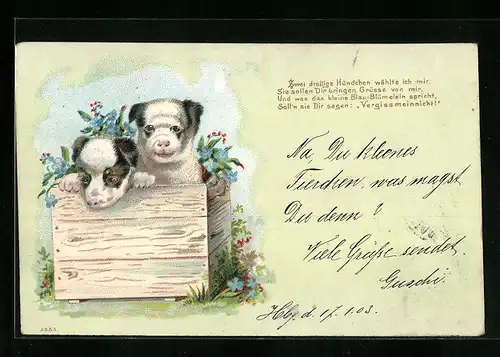 Zwei drollige Hündchen wählte ich mir,
Sie sollen Dir bringen Grüsse von mir,
Und was das kleine Blau-Blümelein spricht,
Soll'n sie Dir sagen: „Vergissmeinnicht!"
Na, Du kleines
Tierchen, was magst
Du denn?
Viele Grüße sendet
Guschi.
Hbg. d. 17.1.03.